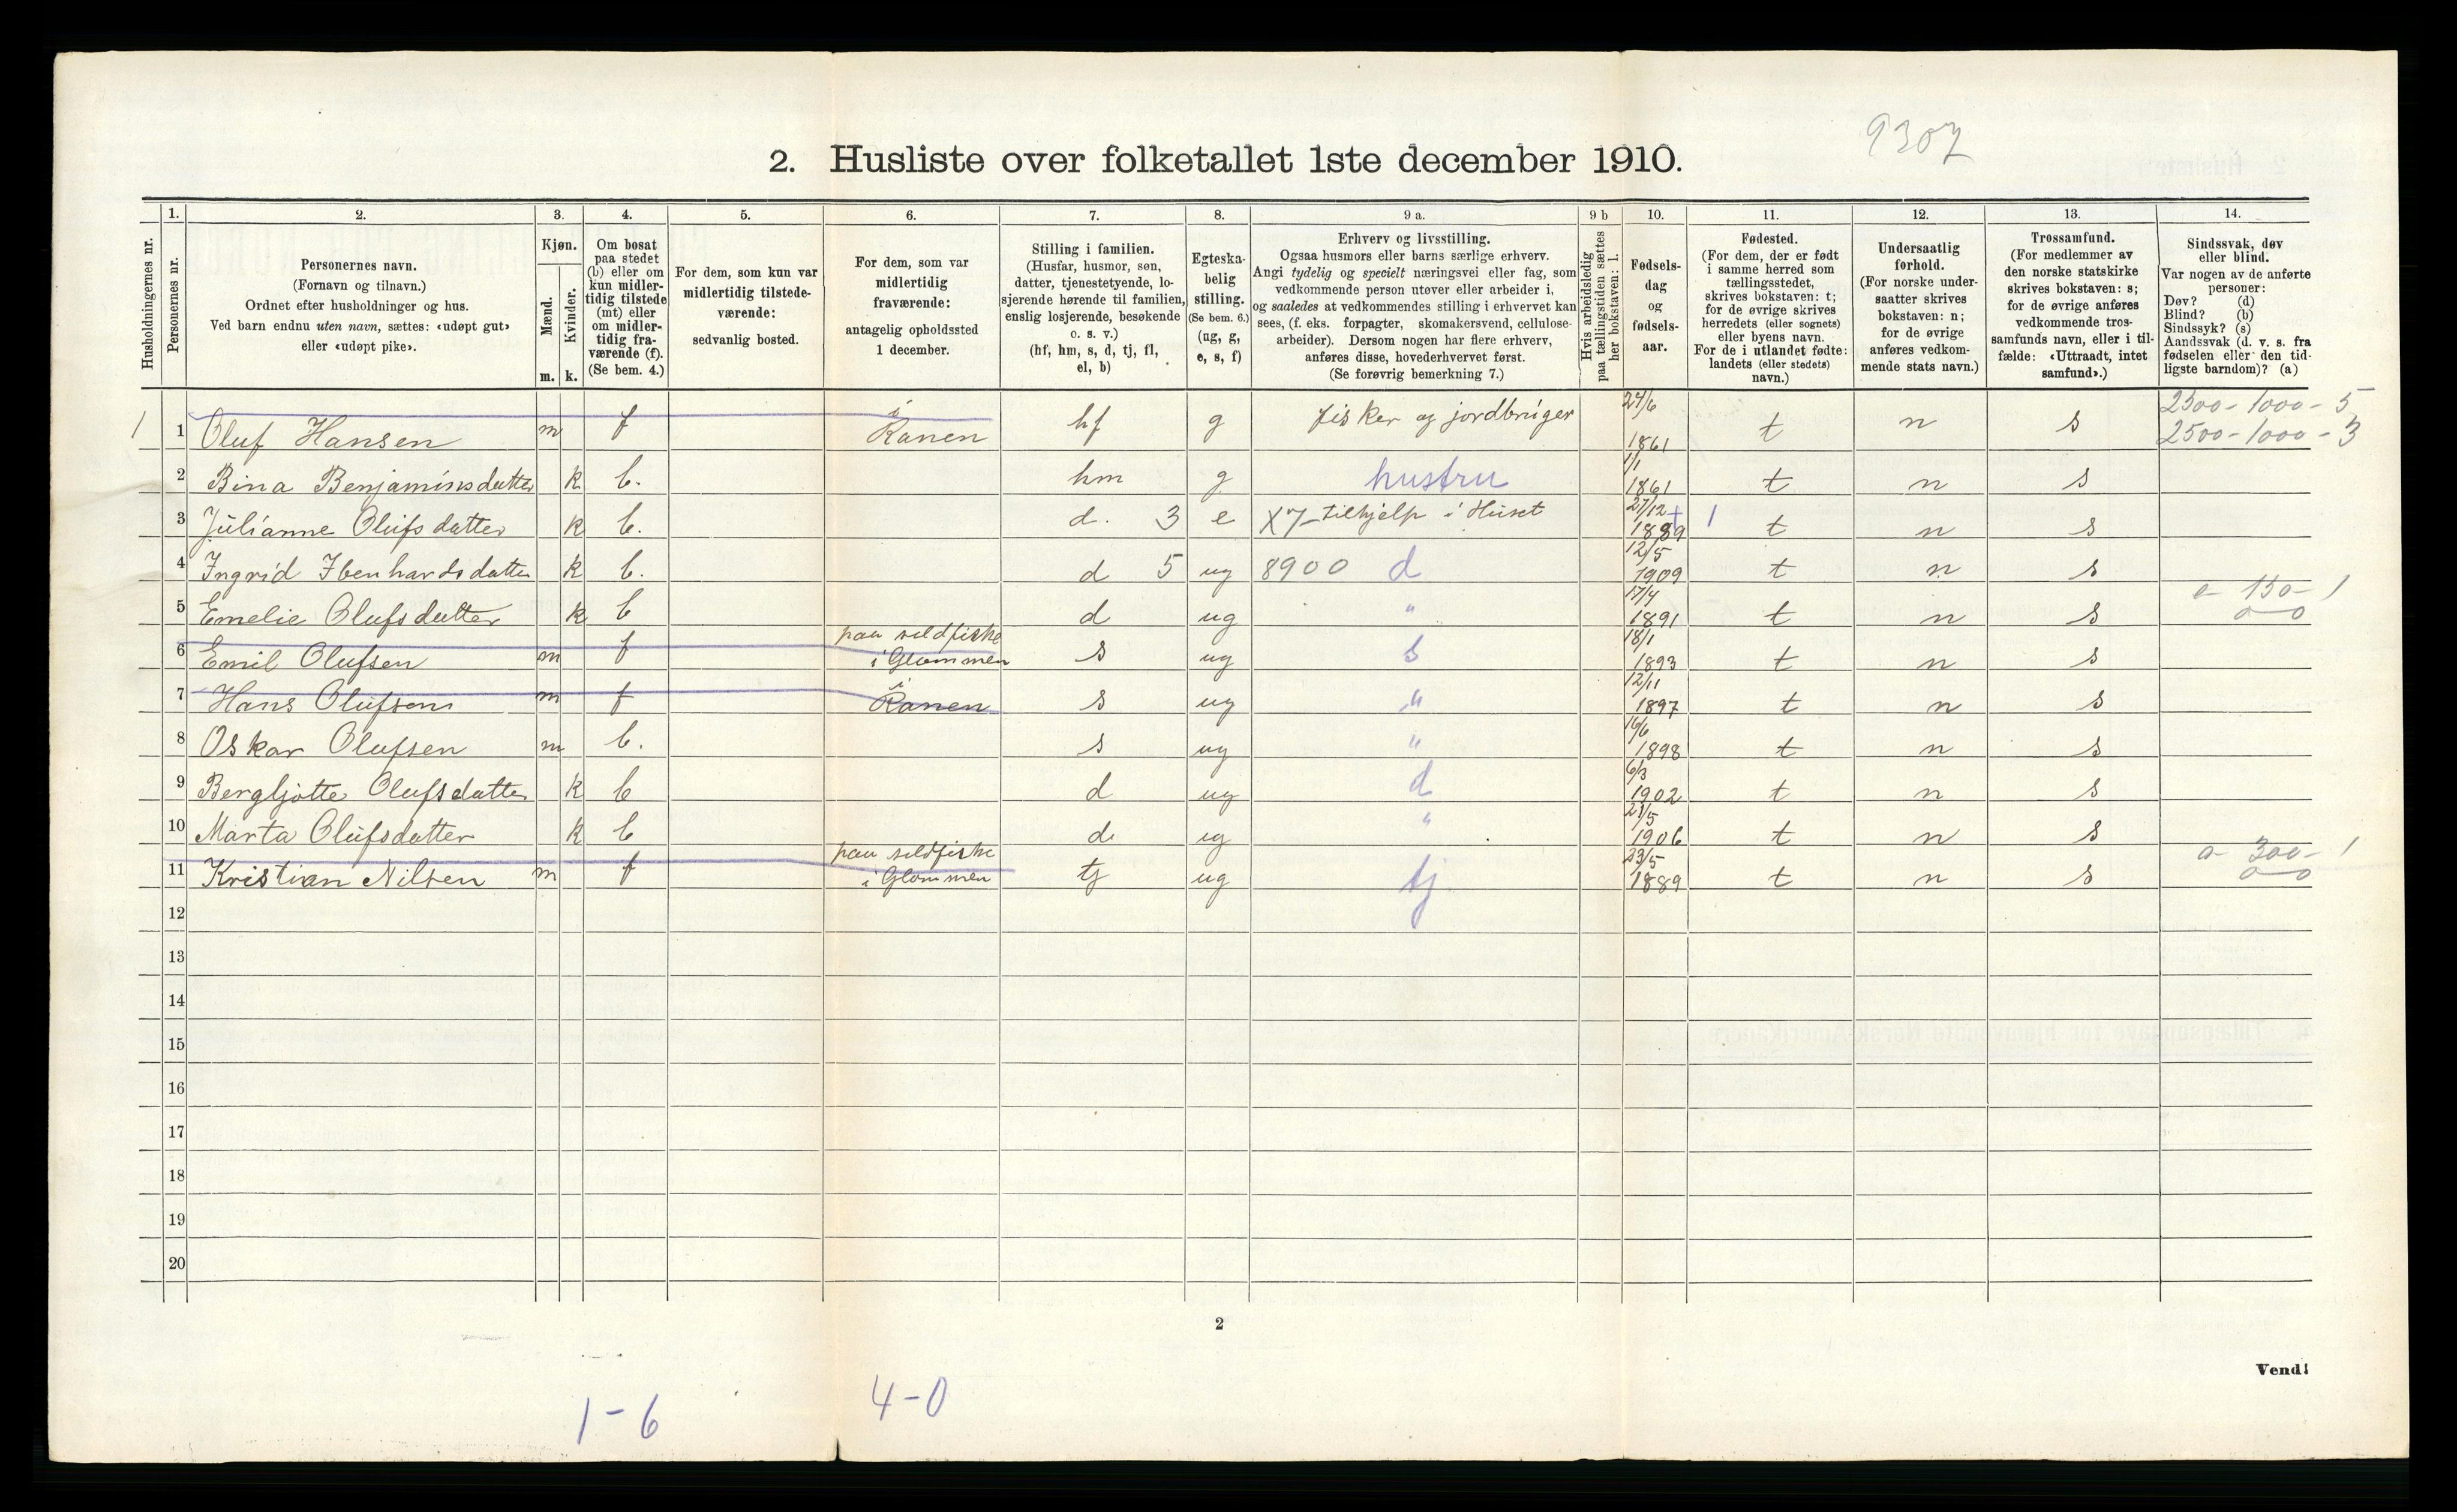 9307
2. Husliste over folketallet 1ste december 1910.
Husholdningernes nr.
1.
Personernes nr.
2.
Personernes navn.
(Fornavn og tilnavn.)
Ordnet efter husholdninger og hus.
Ved barn endnu uten navn, sættes: «udøpt gut»
eller «udøpt pike».
3.
Kjøn.
Mænd.
Kvinder.
m. k.
4.
Om bosat
paa stedet
(b) eller om
kun midler-
tidig tilstede
(mt) eller
om midler-
tidig fra-
værende (f).
(Se bem. 4.)
5.
For dem, som kun var
midlertidig tilstede-
værende:
sedvanlig bosted.
6.
For dem, som var
midlertidig
fraværende:
antagelig opholdssted
1 december.
7.
Stilling i familien.
(Husfar, husmor, søn,
datter, tjenestetyende, lo-
sjerende hørende til familien,
enslig losjerende, besøkende
o. s. v.)
(hf, hm, s, d, tj, fl,
el, b)
8.
Egteska-
belig
stilling.
(Se bem. 6.)
(ug, g,
e, s, f)
9 a.
Erhverv og livsstilling.
Ogsaa husmors eller barns særlige erhverv.
Angi tydelig og specielt næringsvei eller fag, som
vedkommende person utøver eller arbeider i,
og saaledes at vedkommendes stilling i erhvervet kan
sees, (f. eks. forpagter, skomakersvend, cellulose-
arbeider). Dersom nogen har flere erhverv,
anføres disse, hovederhvervet først.
(Se forøvrig bemerkning 7.)
9 b
Hvis arbeidsledig
paa tællingstiden sættes
her bokstaven: l.
10.
Fødsels-
dag
og
fødsels-
aar.
11.
Fødested.
(For dem, der er født
i samme herred som
tællingsstedet,
skrives bokstaven: t;
for de øvrige skrives
herredets (eller sognets)
eller byens navn.
For de i utlandet fødte:
landets (eller stedets)
navn.)
12.
Undersaatlig
forhold.
(For norske under-
saatter skrives
bokstaven: n;
for de øvrige
anføres vedkom-
mende stats navn.)
13.
Trossamfund.
(For medlemmer av
den norske statskirke
skrives bokstaven: s;
for de øvrige anføres
vedkommende tros-
samfunds navn, eller i til-
fælde: «Uttraadt, intet
samfund».)
14.
Sindssvak, døv
eller blind.
Var nogen av de anførte
personer:
Døv? (d)
Blind? (b)
Sindssyk? (s)
Aandssvak (d. v. s. fra
fødselen eller den tid-
ligste barndom)? (a)
1 1 Oluf Hansen m f i Ranen hf g fisker og jordbruger 24/6 1861 t n s 2300-1000-5
2500-1000-3
2 Bina Benjaminsdatter k b. hm g hustru 1/1 1861 t n s
3 Julianne Olufsdatter k b. d. 3 e X7-tilhjelp i Huset 27/12 1889 1 t n s
4 Ingrid Ibenhardsdatter k b. d 5 ug 8900 d 12/5 1909 t n s
5 Emelie Olufsdatter k b d ug " 17/4 1891 t n s 0- 150- 1
0-0
6 Emil Olufsen m f paa sildfiske i Glommen s ug s 18/1 1893 t n s
7 Hans Olufsen m f i Ranen s ug " 12/11 1897 t n s
8 Oskar Olufsen m b. s ug " 16/6 1898 t n s
9 Bergljotte Olufsdatter k b d ug d 6/3 1902 t n s
10 Marta Olufsdatter k b d ug " 21/5 1906 t n s
11 Kristian Nilsen m f paa sildfiske i Glommen tj ug tj 23/5 1889 t n s 0- 300- 1
0-0
12
13
14
15
16
17
18
19
20
2
Vend!
1-6
4-0